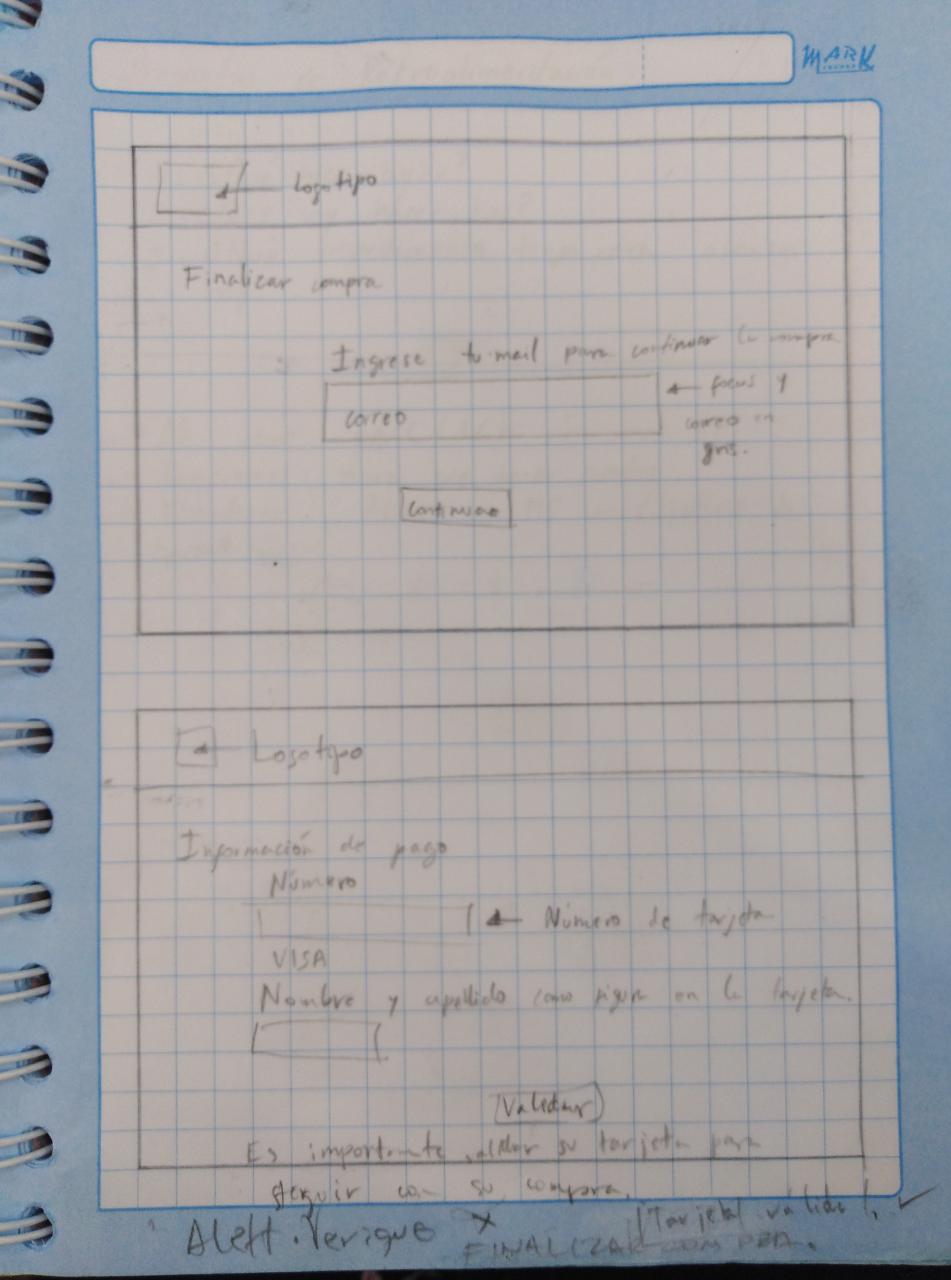 MARK
Logotipo
Finalizar compra
Ingrese tu mail para continuar la compra
correo
focus y
correo en
gris.
continuar
Logotipo
Información de pago
Número
Número de tarjeta
VISA
Nombre y apellido como figura en la tarjeta.
Validar
Es importante su tarjeta para
seguir con su compra.
Tarjeta válida
FINALIZAR COMPRA.